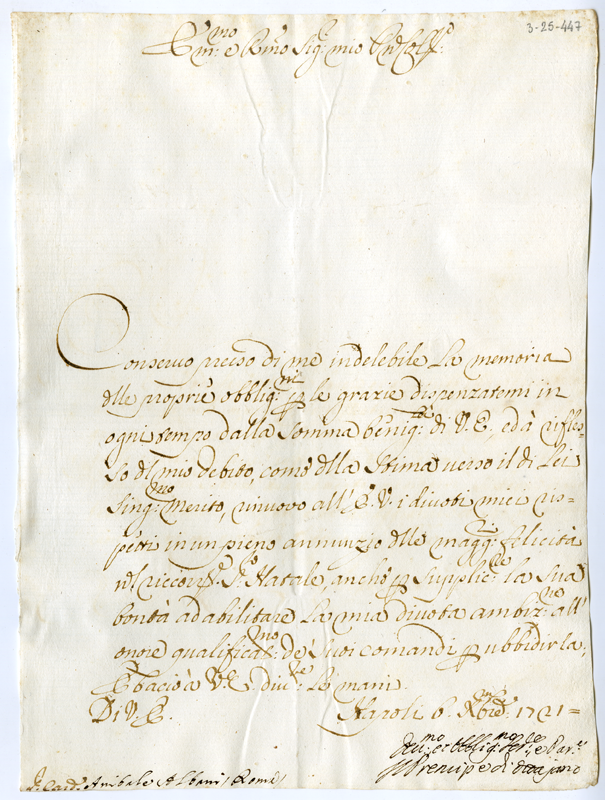 3-25-447
Em:mo e Rmo Sig:r mio
Conservo presso di me indelebile la memoria
dlle proprie obblig:ni p le grazie dispenzatemi in
ogni tempo dalla somma benig:tà di V. E., ed à rifles-
so dl mio debito, come dlla stima verso il di Lei
sing:mo merito, rinuovo all' E. V. i divoti miei ris=
petti in un pieno annunzio dlle magg:ri felicità
nl Natale, anche p supplic:le la sua
bontà ad abilitare la mia divota ambiz:ne all'
onore qualifica:mo de' suoi comandi p ubbidirla;
E bacio à V. E. div:te le mani.
Di V. E. Napoli 6. Xbre 1721=
Principe di Ottajano
Card: Anibale Albani (Roma)